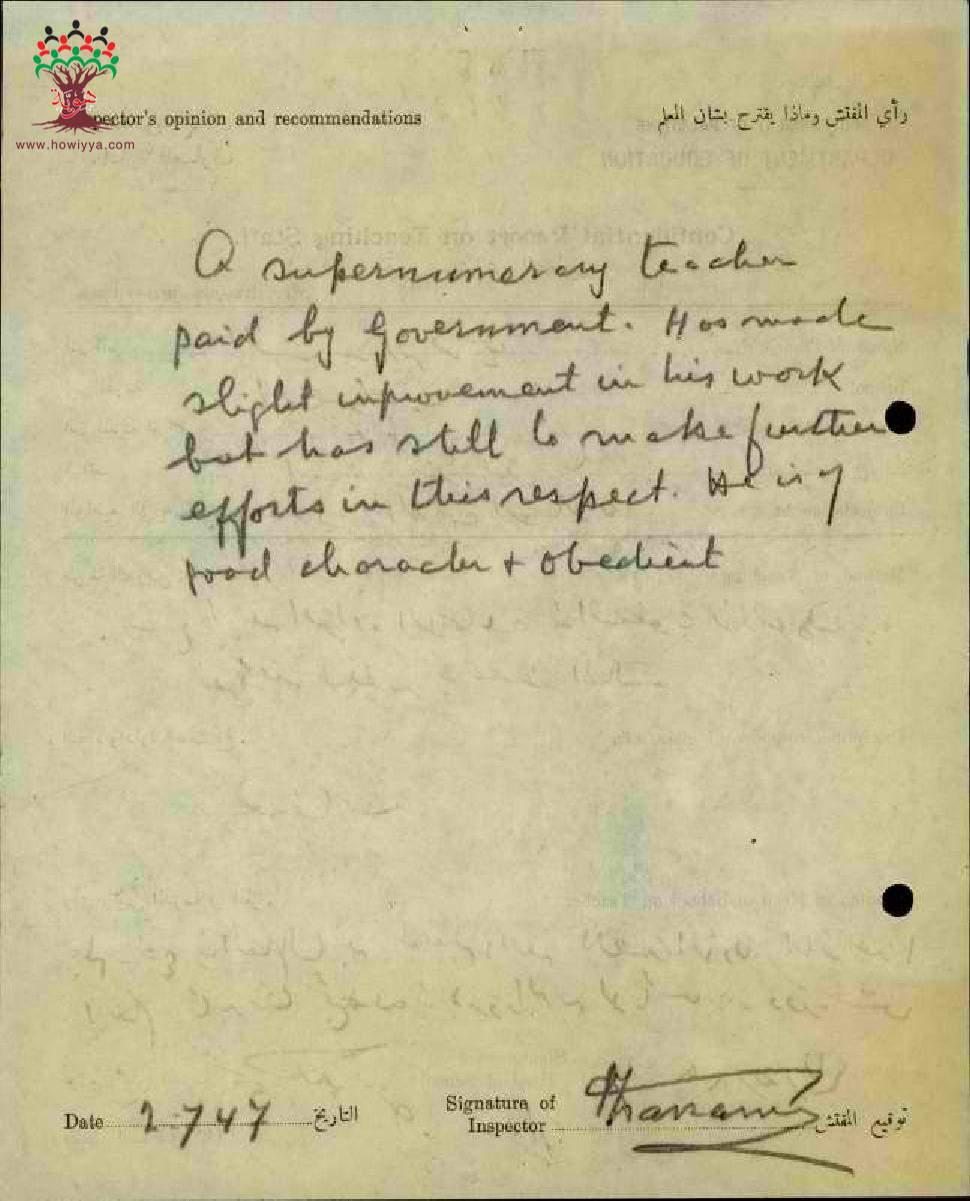 هوية
www.howiyya.com
pector's opinion and recommendations
رأي المفتش وماذا يقترح بشان المعلم
A supernumerary teacher
paid by Government. Has made
slight improvement in his work
but has still to make further
efforts in this respect. He is of
good character + obedient
Date 2.7.47 التاريخ
Signature of
Inspector توقيع المفتش